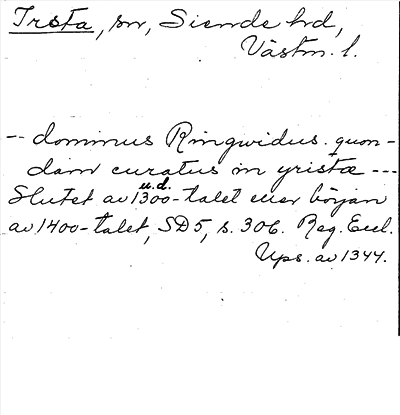 Irsta, sn, Siende hd,
Västm. l.
-- dominus Ringwidus. quon-
dam curatus in yristæ ---
u.d.
Slutet av 1300-talet eller början
av 1400-talet, SD 5, s. 306. Reg. Eccl.
Ups. av 1344.